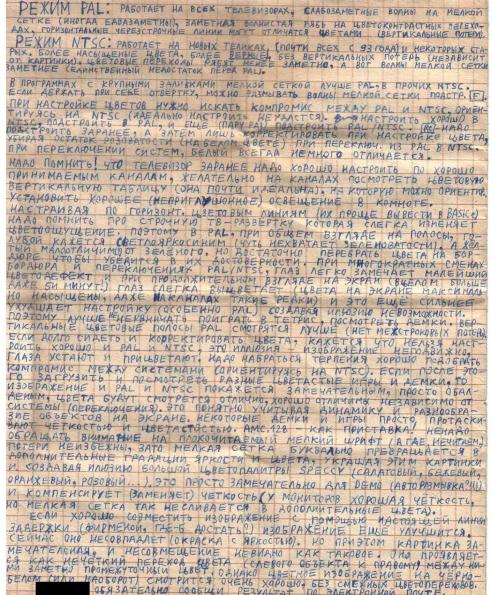 РЕЖИМ PAL: РАБОТАЕТ НА ВСЕХ ТЕЛЕВИЗОРАХ, СЛАБОЗАМЕТНЫЕ ВОЛНЫ НА МЕЛКОЙ
СЕТКЕ (ИНОГДА ЕДВАЗАМЕТНЫ), ЗАМЕТНАЯ ВОЛНИСТАЯ РЯБЬ НА ЦВЕТОКОНТРАСТНЫХ ПЕРЕХО-
ДАХ, ГОРИЗОНТАЛЬНЫЕ ЧЕРЕЗСТРОЧНЫЕ ЛИНИИ МОГУТ ОТЛИЧАТСЯ ЦВЕТАМИ (ВЕРТИКАЛЬНЫЕ ПОТЕРИ).
РЕЖИМ NTSC: РАБОТАЕТ НА НОВЫХ ТЕЛИКАХ, (ПОЧТИ ВСЕХ С 93 ГОДА) И НЕКОТОРЫХ СТА-
РЫХ, БОЛЕЕ НАСЫЩЕНЫЕ ЦВЕТА, БОЛЕЕ БЕЗ ВЕРТИКАЛЬНЫХ ПОТЕРЬ (НЕЗАВИСИТ
ОТ КАРТИНКИ). ЦВЕТОВЫЕ ПЕРЕХОДЫ РЯБЯТ МЕНЕЕ ЗАМЕТНО, А ВОТ ВОЛНЫ МЕЛКОЙ СЕТКИ
ЗАМЕТНЕЕ (ЕДИНСТВЕННЫЙ НЕДОСТАТОК ПЕРЕД PAL).
В ПРОГРАММАХ С КРУПНЫМИ ЗАЛИВКАМИ МЕЛКОЙ СЕТКОЙ ЛУЧШЕ PAL, В ПРОЧИХ NTSC.
ЕСЛИ ДЕРЖАТЬ ПРИ СЕБЕ ОТВЕРТКУ, МОЖНО РАЗМЫВАТЬ ВОЛНЫ МЕЛКОЙ СЕТКИ ПОДСТР. F.
ПРИ НАСТРОЙКЕ ЦВЕТОВ НУЖНО ИСКАТЬ КОМПРОМИС МЕЖДУ PAL И NTSC, ОРИЕН-
ТИРУЯСЬ НА NTSC (ИДЕАЛЬНО НАСТРОИТЬ НЕУДАСТСЯ). НАСТРОИТЬ ХОРОШО В
NTSC, ПОДСТРОИТЬ В PAL, И ЕЩЕ (ПАРУ РАЗ) ПОДСТРОИТЬ PAL И NTSC. НАДО
ПОДСТРОИТЬ ЗАРАНЕЕ, А ЗАТЕМ ЛИШЬ КОРРЕКТИРОВАТЬ. В НАСТРОЙКЕ ЦВЕТА,
УБИРАЯ ОСТАТОК РОЗОВАТОСТИ (НА БЕЛОМ ЦВЕТЕ) ПРИ ПЕРЕКЛЮЧ. ИЗ PAL В NTSC.
ПРИ ПЕРЕКЛЮЧЕНИИ СИСТЕМ, БЕЛЫЙ ВСЕГДА НЕМНОГО ОТЛИЧАЕТСЯ.
НАДО ПОМНИТЬ! ЧТО ТЕЛЕВИЗОР ЗАРАНЕЕ НАДО ХОРОШО НАСТРОИТЬ ПО ХОРОШО
ПРИНИМАЕМЫМ КАНАЛАМ, ЖЕЛАТЕЛЬНО НА КАНАЛАХ ПОСМОТРЕТЬ ЦВЕТОВУЮ
ВЕРТИКАЛЬНУЮ ТАБЛИЦУ (ОНА ПОЧТИ ИДЕАЛЬНА), НА КОТОРУЮ МОЖНО ОРИЕНТИР.
УСТАНОВИТЬ ХОРОШЕЕ (НЕПРИГЛУШОННОЕ) ОСВЕЩЕНИЕ В КОМНОТЕ.
НАСТРАИВАЯ ПО ГОРИЗОНТ. ЦВЕТОВЫМ ЛИНИЯМ (ИХ ПРОЩЕ ВЫВЕСТИ В BASICе)
НАДО ПОМНИТЬ ПРО СТРОЧНУЮ ТВ-РАЗВЕРТКУ КОТОРАЯ СЛЕГКА ИЗМЕНЯЕТ
ЦВЕТООЩУЩЕНИЕ. ПОЭТОМУ В PAL, ПРИ ОБЩЕМ ВЗГЛЯДЕ НА ПОЛОСЫ, ГО-
ЛУБОЙ КАЖЕТСЯ СВЕТЛОЯРКОСИНИМ (ЧУТЬ НЕХВАТАЕТ ЗЕЛЕНОВАТОСТИ), А ЖЕЛ-
ТЫЙ МАЛООТЛИЧИМ ОТ ЗЕЛЕНОГО, НО ДОСТАТОЧНО ПЕРЕБРАТЬ ЦВЕТА НА БОР-
ДЮРЕ ЧТОБЫ УБЕДИТСЯ В ИХ ДОСТОВЕРНОСТИ. ПРИ МНОГОКРАТНЫХ СМЕНАХ
БОРДЮРА И ПЕРЕКЛЮЧЕНИЯХ PAL/NTSC, ГЛАЗ ЛЕГКО ЗАМЕЧАЕТ МАЛЕЙШИЙ
ЦВЕТОДЕФЕКТ И ПРИ ПРОДОЛЖИТЕЛЬНОМ ВЗГЛЯДЕ НА ЭКРАН (ВЦЕЛОМ БОЛЬШЕ
ДАЖЕ 5И МИНУТ!) ГЛАЗ ЛЕГКО ВЦВЕТАЕТ (ЦВЕТА НА ЭКРАНЕ МАКСИМАЛЬ-
НО НАСЫЩЕНЫ, ДАЖЕ НАКАНАЛАХ ТАКИЕ РЕДКИ) И ЭТО ЕЩЕ СИЛЬНЕЕ
УХУДШАЕТ НАСТРОЙКУ (ОСОБЕННО PAL) СОЗДАВАЯ ИЛЮЗИЮ НЕВОЗМОЖНОСТИ.
ПОЭТОМУ, ЛУЧШЕ НЕЧАИВАТЬ ПОИГРАТЬ В ТЕТРИС, ПОСМОТРЕТЬ ДЕМКИ. ВЕР-
ТИКАЛЬНЫЕ ЦВЕТОВЫЕ ПОЛОСЫ PAL СМОТРЯТСЯ ЛУЧШЕ (НЕТ МЕЖСТРОКОВЫХ ПОТЕРЬ).
ЕСЛИ ДОЛГО СИДЕТЬ И КОРРЕКТИРОВАТЬ ЦВЕТА, КАЖЕТСЯ ЧТО НЕЛЬЗЯ НАСТ-
РОИТЬ ХОРОШО И PAL И NTSC, ЭТО ИЛЛЮЗИЯ — ИЗОБРАЖЕНИЕ НЕПОДВИЖНО,
ГЛАЗА УСТАЮТ И ПРИЦВЕТАЮТ. НАДО НАБРАТЬСЯ ТЕРПЕНИЯ И ХОРОШО ПОДОБРАТЬ
КОМПРОМИС МЕЖДУ СИСТЕМАМИ (ОРИЕНТИРУЯСЬ НА NTSC). ЕСЛИ ПОСЛЕ ЭТО-
ГО ЗАГРУЗИТЬ И ПОСМОТРЕТЬ РАЗНЫЕ ЦВЕТАСТЫЕ ИГРЫ И ДЕМКИ, ТО
ИЗОБРАЖЕНИЕ И PAL И NTSC ПОКАЖЕТСЯ ЗАМЕЧАТЕЛЬНЫМ, ПРОСТО ОБАЛ-
ДЕНЫМ, ЦВЕТА БУДУТ СМОТРЕТСЯ ОТЛИЧНО, ХОРОШО ОТЛИЧАТСЯ (НЕЗАВИСИМО ОТ
СИСТЕМЫ (ПЕРЕКЛЮЧЕНИЯ). ЭТО ПОНЯТНО УЧИТЫВАЯ ДИНАМИКУ И РАЗНООБРА-
ЗИЕ ОБЪЕКТОВ НА ЭКРАНЕ, НЕКОТОРЫЕ ДЕМКИ И ИГРЫ ПРОСТО, ПРОТАСКИ-
ВАЮТ ЧЕТКОСТЬЮ И ЦВЕТАСТОСТЬЮ. АМС-128 - КАК ПРИСТАВКА. НЕНАДО
ОБРАЩАТЬ ВНИМАНИЕ НА ПЛОХОЧИТАЕМЫЙ МЕЛКИЙ ШРИФТ (А ГДЕ, НЕЧИТАЕМ).
ПОТЕРИ НЕИЗБЕЖНЫ, ЗАТО МЕЛКАЯ СЕТКА БУКВАЛЬНО ПРЕВРАЩАЕТСЯ В
ДОПОЛНИТЕЛЬНЫЕ ГРАДАЦИИ ЯРКОСТИ И ЦВЕТА, УКРАШАЯ ЭТИМ КАРТИНКИ
СОЗДАВАЯ ИЛЮЗИЮ БОЛЬШОЙ ЦВЕТОПАЛИТРЫ SPECCY (САЛАТОВЫЙ, БЕЖЕВЫЙ,
ОРАНЖЕВЫЙ, РОЗОВЫЙ...), ЭТО ПРОСТО ЗАМЕЧАТЕЛЬНО ДЛЯ DEMO (АВТОРАЗМЫВКА!!!)
И КОМПЕНСИРУЕТ (ЗАМЕНЯЕТ) ЧЕТКОСТЬ (У МОНИТОРОВ ХОРОШАЯ ЧЕТКОСТЬ,
НО МЕЛКАЯ СЕТКА ТАК НЕСЛИВАЕТСЯ В ДОПОЛНИТЕЛЬНЫЕ ЦВЕТА).
ЕСЛИ ХОРОШО СОВМЕСТИТЬ ИЗОБРАЖЕНИЕ С ПОМОЩЬЮ НАСТОЯЩЕЙ ЛИНИИ
ЗАДЕРЖКИ (ФИРМЕНОЙ, ГДЕ-Б ДОСТАТЬ?) ИЗОБРАЖЕНИЕ ЕЩЕ УЛУЧШИТСЯ.
СЕЙЧАС ОНО НЕСОВПАДАЕТ (ОКРАСКА С ЯРКОСТЬЮ), НО ПРИЭТОМ КАРТИНКА ЗА-
МЕЧАТЕЛЬНАЯ, И НЕСОВМЕЩЕНИЕ НЕВИДНО КАК ТАКОВОЕ. ОНО ПРОЯВЛЯЕТ-
СЯ КАК НЕЧЕТКИЙ ПЕРЕХОД ЦВЕТА (СЛЕВОГО ОБЪЕКТА К ПРАВОМУ) МЕЖДУ НИ-
МИ ЗАМЕТНО ПРОМЕЖУТОЧНЫЙ ЦВЕТ. ОДНАКО ЦВЕТНОЕ ИЗОБРАЖЕНИЕ НА ЧЕРНО-
БЕЛОМ (ИЛИ НАОБОРОТ) СМОТРИТСЯ ОЧЕНЬ ХОРОШО, БЕЗ СМЕЖНЫХ ЦВЕТОПЕРЕХОДОВ.
ОБЯЗАТЕЛЬНО СООБЩИ РЕЗУЛЬТАТ ПО ЭЛЕКТРОННОЙ ПОЧТЕ.